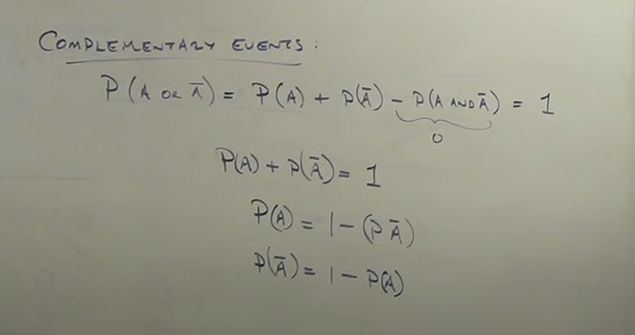 COMPLEMENTARY EVENTS:
P(A OR Ā) = P(A) + P(Ā) - P(A AND Ā) = 1
0
P(A) + P(Ā) = 1
P(A) = 1 - (P Ā)
P(Ā) = 1 - P(A)